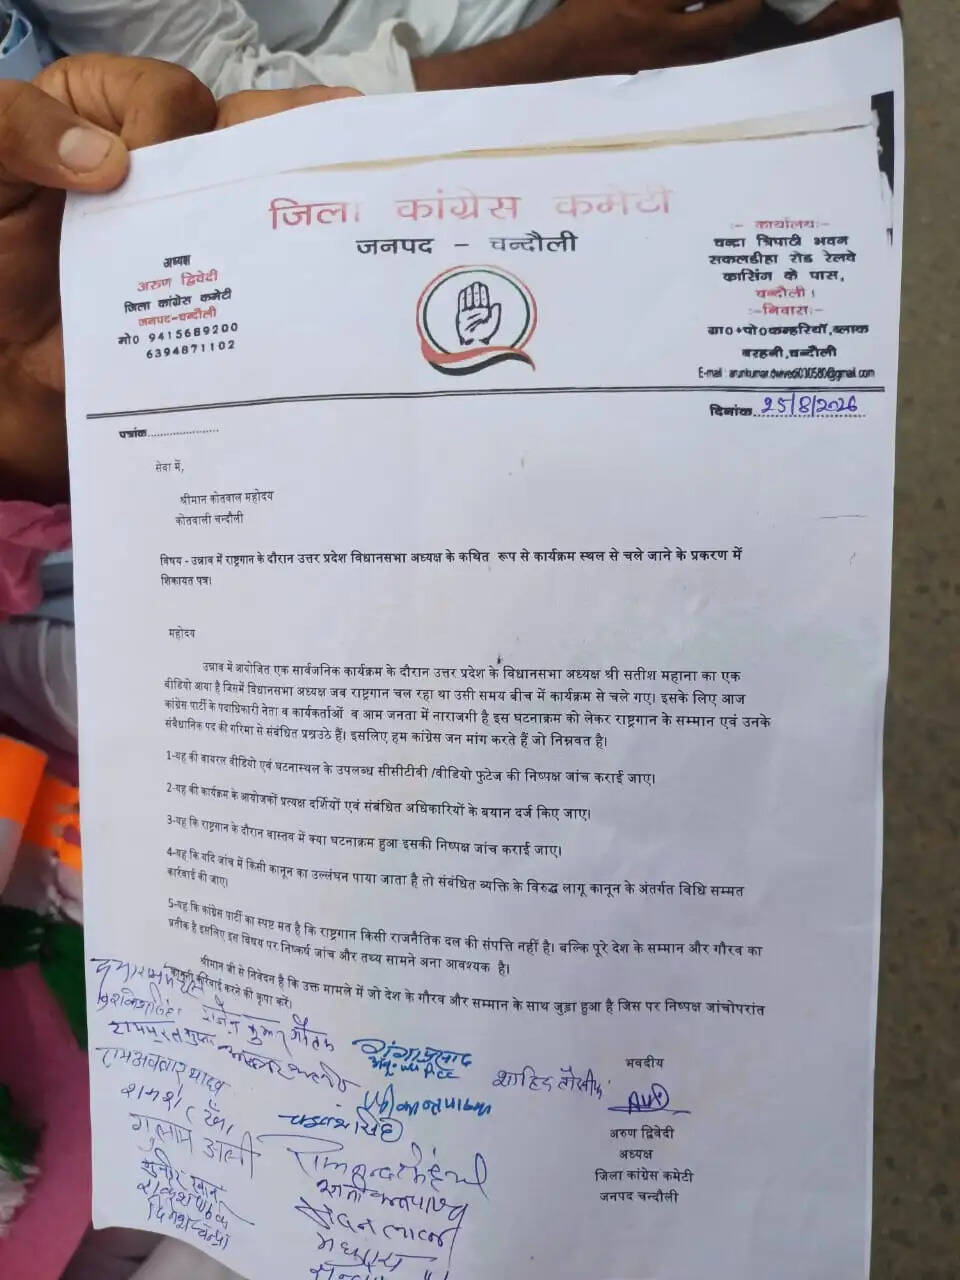 जिला कांग्रेस कमेटी
जनपद - चन्दौली
अध्यक्ष
अरुण द्विवेदी
जिला कांग्रेस कमेटी
जनपद-चन्दौली
मो0 9415689200
6394871102
:- कार्यालय:-
चन्द्रा त्रिपाठी भवन
सकलडीहा रोड रेलवे
कासिंग के पास,
चन्दौली।
:-निवास:-
ग्रा0+पो0कम्हरियाँ,ब्लाक
बरहनी,चन्दौली
E-mail :
दिनांक 25/8/2026
पत्रांक
सेवा में,
श्रीमान कोतवाल महोदय
कोतवाली चन्दौली
विषय - उन्नाव में राष्ट्रगान के दौरान उत्तर प्रदेश विधानसभा अध्यक्ष के कथित रूप से कार्यक्रम स्थल से चले जाने के प्रकरण में
शिकायत पत्र।
महोदय
उन्नाव में आयोजित एक सार्वजनिक कार्यक्रम के दौरान उत्तर प्रदेश के विधानसभा अध्यक्ष श्री सतीश महाना का एक
वीडियो आया है जिसमें विधानसभा अध्यक्ष जब राष्ट्रगान चल रहा था उसी समय बीच में कार्यक्रम से चले गए। इसके लिए आज
कांग्रेस पार्टी के पदाधिकारी नेता व कार्यकर्ताओं व आम जनता में नाराजगी है इस घटनाक्रम को लेकर राष्ट्रगान के सम्मान एवं उनके
संवैधानिक पद की गरिमा से संबंधित प्रश्नउठे हैं। इसलिए हम कांग्रेस जन मांग करते हैं जो निम्नवत है।
1-यह की वायरल वीडियो एवं घटनास्थल के उपलब्ध सीसीटीवी /वीडियो फुटेज की निष्पक्ष जांच कराई जाए।
2-यह की कार्यक्रम के आयोजकों प्रत्यक्ष दर्शियों एवं संबंधित अधिकारियों के बयान दर्ज किए जाए।
3-यह कि राष्ट्रगान के दौरान वास्तव में क्या घटनाक्रम हुआ इसकी निष्पक्ष जांच कराई जाए।
4-यह कि यदि जांच में किसी कानून का उल्लंघन पाया जाता है तो संबंधित व्यक्ति के विरुद्ध लागू कानून के अंतर्गत विधि सम्मत
कार्रवाई की जाए।
5-यह कि कांग्रेस पार्टी का स्पष्ट मत है कि राष्ट्रगान किसी राजनैतिक दल की संपत्ति नहीं है। बल्कि पूरे देश के सम्मान और गौरव का
प्रतीक है इसलिए इस विषय पर निष्कर्ष जांच और तथ्य सामने अना आवश्यक है।
श्रीमान जी से निवेदन है कि उक्त मामले में जो देश के गौरव और सम्मान के साथ जुड़ा हुआ है जिस पर निष्पक्ष जांचोपरांत
कानूनी कार्रवाई करने की कृपा करें।
रामअवतार यादव
गुलाम अली
भवदीय
अरुण द्विवेदी
अध्यक्ष
जिला कांग्रेस कमेटी
जनपद चन्दौली